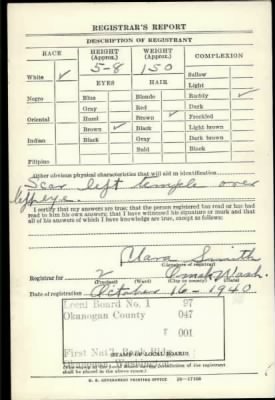 REGISTRAR'S REPORT
DESCRIPTION OF REGISTRANT
RACE HEIGHT (Approx.) WEIGHT (Approx.) COMPLEXION
5-8 150
White ✓ EYES HAIR Sallow
Light
Negro Blue Blonde Ruddy ✓
Gray Red Dark
Oriental Hazel Brown ✓ Freckled
Brown ✓ Black Light brown
Indian Black Gray Dark brown
Bald Black
Filipino
Other obvious physical characteristics that will aid in identification
Scar left temple over
left eye.
I certify that my answers are true; that the person registered has read or has had
read to him his own answers; that I have witnessed his signature or mark and that
all of his answers of which I have knowledge are true, except as follows:
Clara Smith
(Signature of registrar)
Registrar for 2 Omak Wash.
(Precinct) (Ward) (City or county) (State)
Date of registration October 16-1940
Local Board No. 1 97
Okanogan County 047
001
First Nat'l Bank Bldg.
Okanogan, Washington
(STAMP OF LOCAL BOARD)
(The stamp of the Local Board having jurisdiction of the registrant
shall be placed in the above space.)
U. S. GOVERNMENT PRINTING OFFICE 16—17105